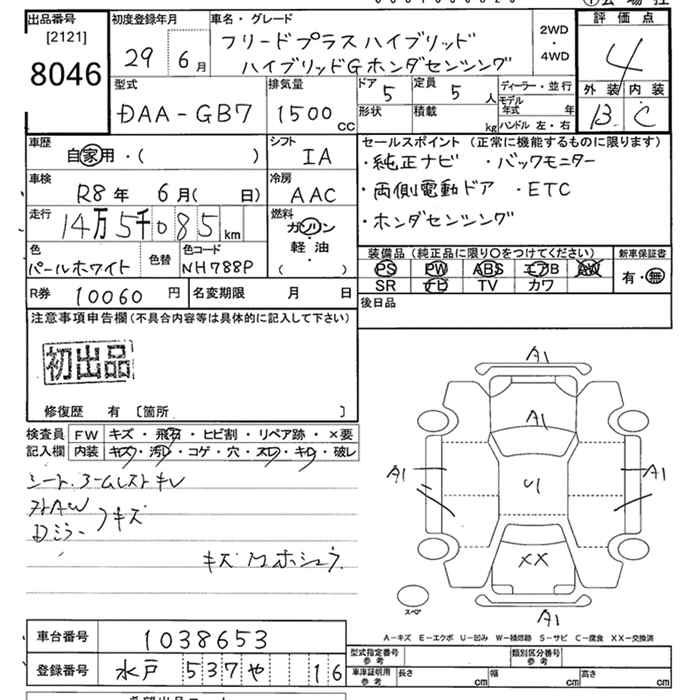 出品番号 初度登録年月 車名・グレード 評価点
[2121] 29 6月 フリードプラスハイブリッド 2WD・4WD 4
8046 ハイブリッドGホンダセンシング
型式 排気量 ドア 5 定員 5人 ディーラー・並行 外装 内装
DAA-GB7 1500cc 形状 積載 kg モデル年式 年 B C
ハンドル 左・右
車歴 シフト セールスポイント(正常に機能するものに限ります)
自家用・( ) IA ・純正ナビ ・バックモニター
車検 冷房 ・両側電動ドア ・ETC
R8年 6月( 日) AAC ・ホンダセンシング
走行 燃料
14万5千085km ガソリン
軽油
( )
色 色替 色コード 装備品(純正品に限り○をつけてください) 新車保証書
パールホワイト NH788P PS PW ABS エアB AW 有・無
SR ナビ TV カワ
R券 10060円 名変期限 月 日 後日品
注意事項申告欄(不具合内容等は具体的に記入して下さい)
初出品
修復歴 有 〔箇所 〕
検査員 FW キズ・飛石・ヒビ割・リペア跡・×要
記入欄 内装 キズ・汚レ・コゲ・穴・スレ・キレ・破レ
シート.アームレストキレ
キズ
Dミラー
キズ
A1
A1
A1 U A1
XX
A1
スペア
A-キズ E-エクボ U-凹み W-補修跡 S-サビ C-腐食 XX-交換済
車台番号 1038653
型式指定番号 参考 類別区分番号 参考
登録番号 水戸 537 や 16
車庫証明用 参考 長さ cm 幅 cm 高さ cm